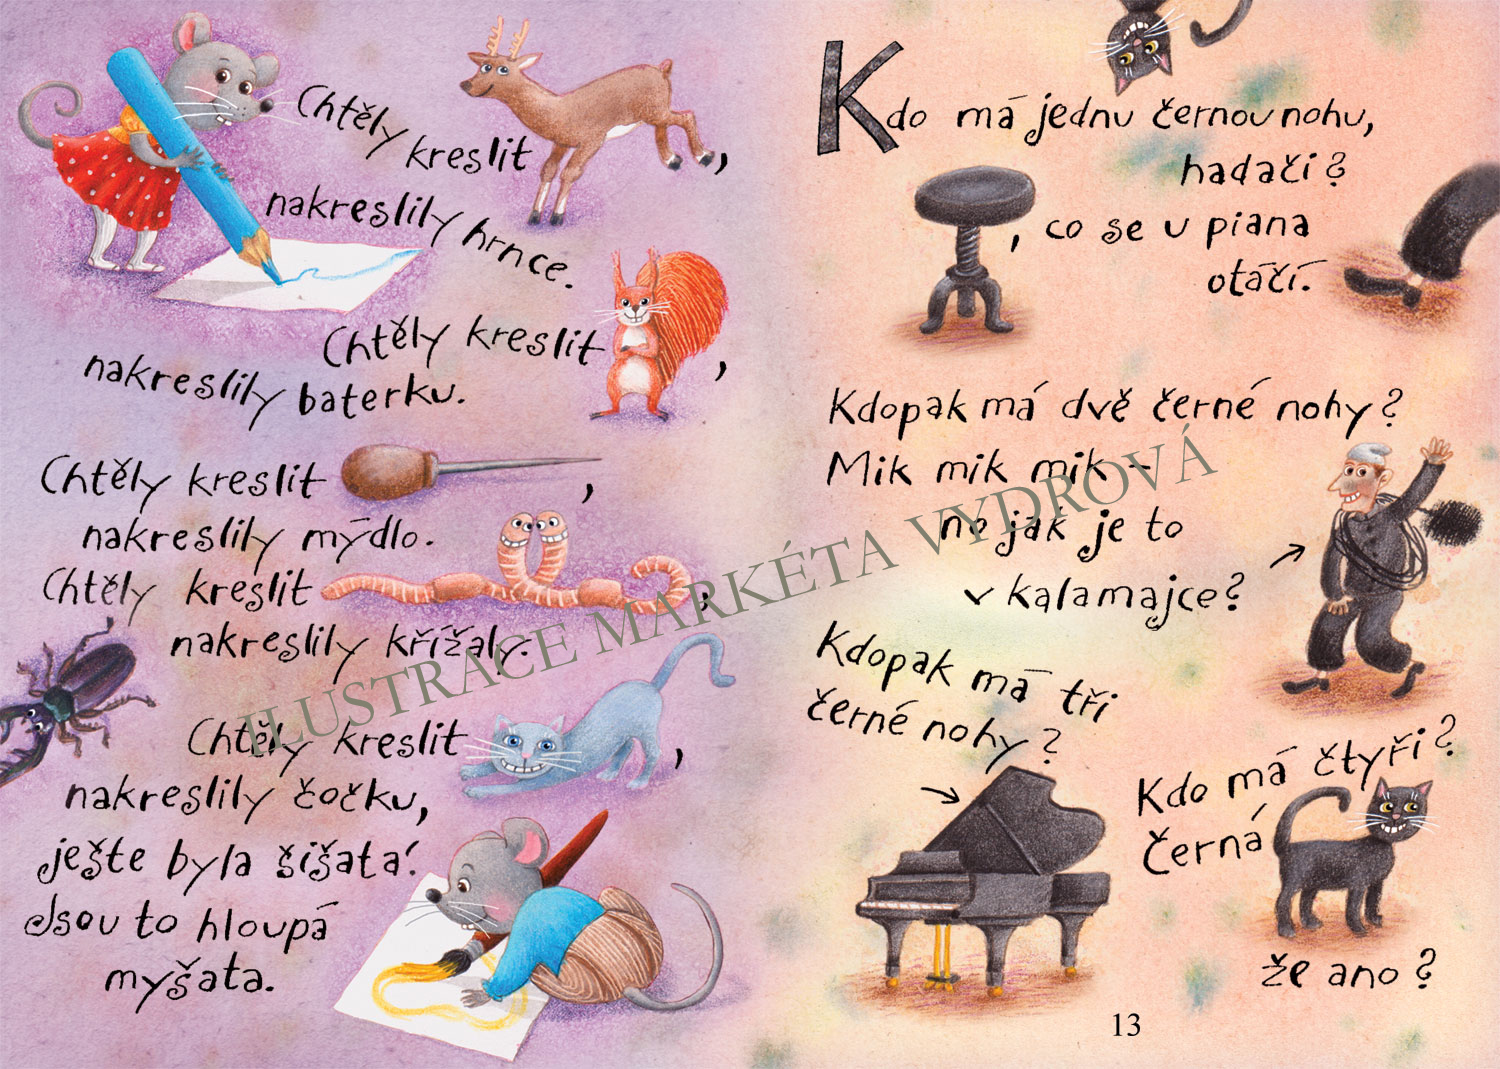 Chtěly
kreslit ,
nakreslily hrnce.
Chtěly kreslit ,
nakreslily baterku.
Chtěly kreslit ,
nakreslily mýdlo.
Chtěly kreslit ,
nakreslily křížaly.
Chtěly kreslit ,
nakreslily čočku,
ješte byla šišata!
Jsou to hloupá
myšata.
Kdo má jednu černou nohu,
hadači?
, co se u piana
otáčí.
Kdopak má dvě černé nohy?
Mik mik mik –
ne jak je to
v kalamajce?
Kdopak má tři
černé nohy?
Kdo má čtyři?
černá
že ano?
13
ILUSTRACE MARKÉTA VYDROVÁ